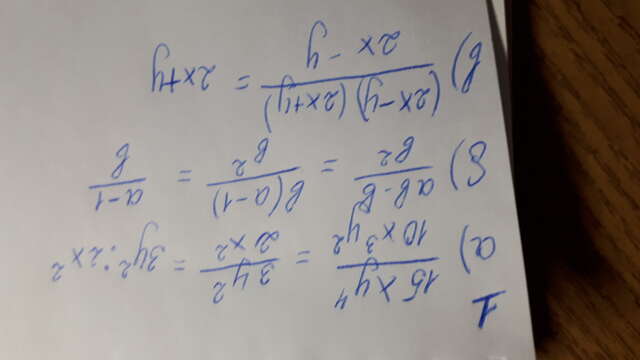 1
а) 15xy⁴/10x³y² = 3y²/2x² = 3y² : 2x²
б) ab-b/b² = b(a-1)/b² = a-1/b
в) (2x-y)(2x+y)/2x-y = 2x+y